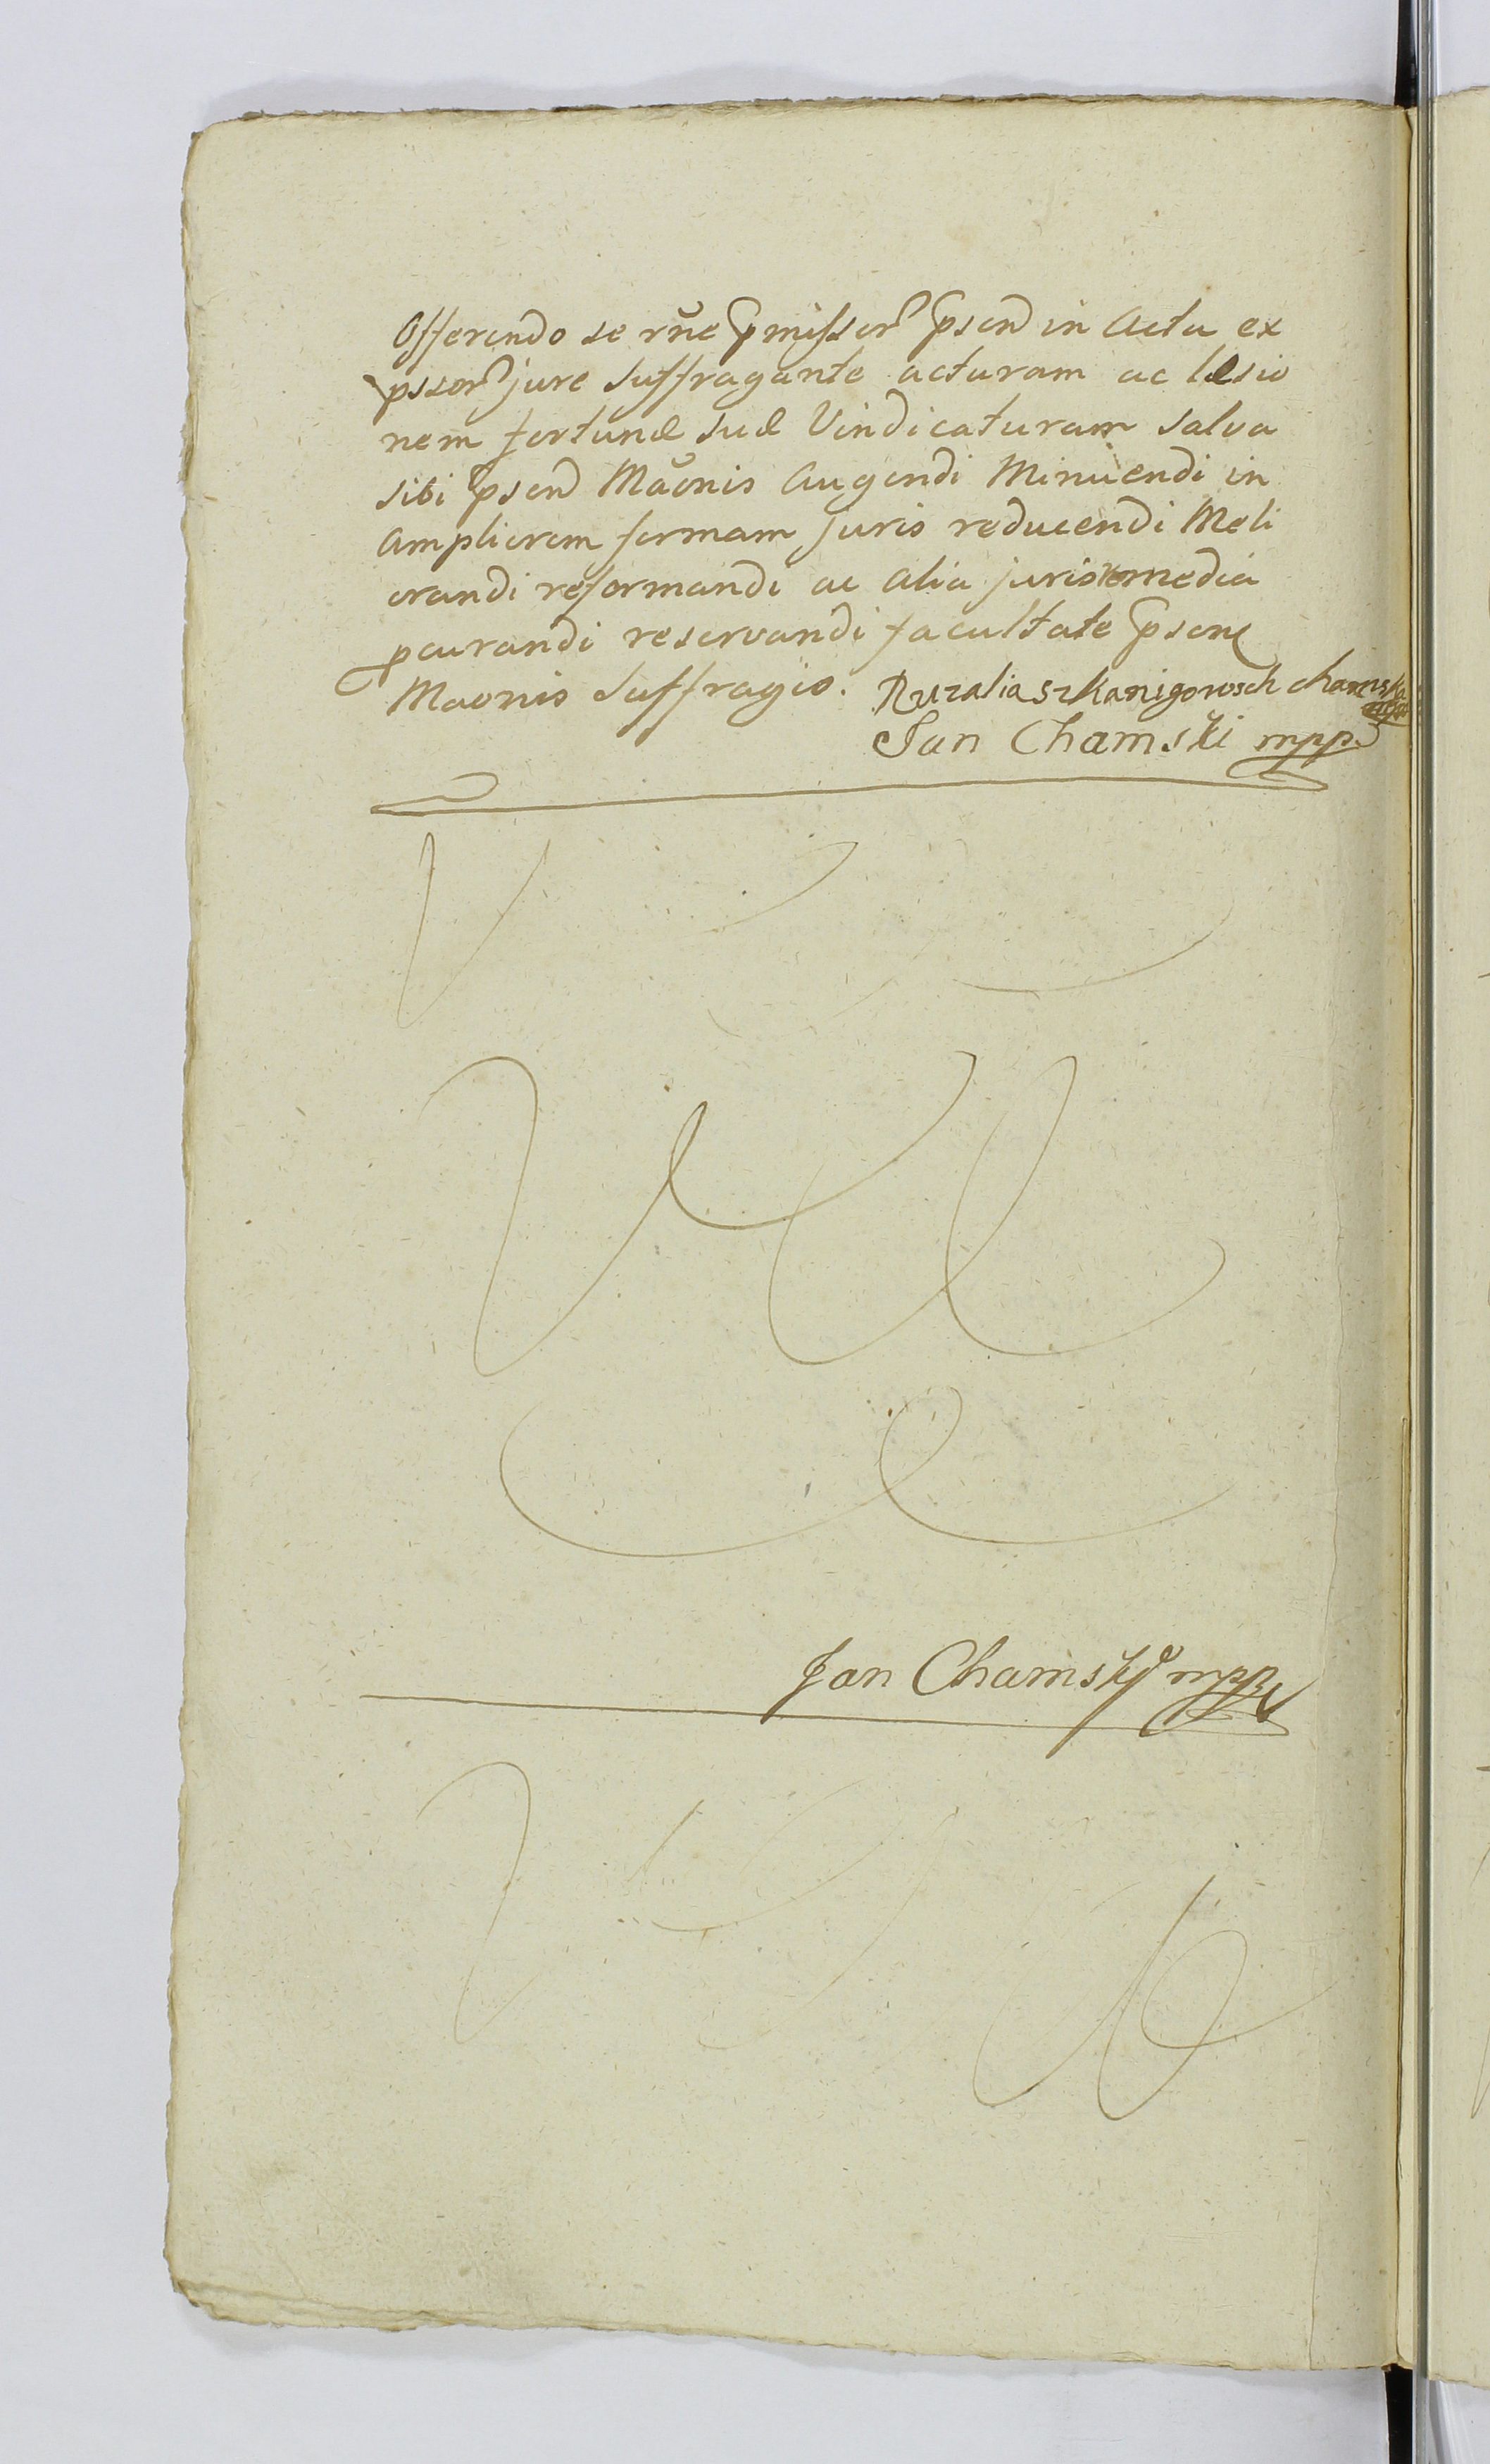 Offerendo se rñe pmissor psend in Actu ex
pssor jure suffragante acturam ac læsio
nem fortunæ suæ Vindicaturam salva
sibi psend Maõnis Augendi Minuendi in
Ampliorem formam juris reducendi Meli
orandi reformandi ac alia juris remedia
pcurandi reservandi facultate psene
Maonis suffragio. Ruzalia szkanigowsch chamska
Jan Chamski mpp
Jan Chamsky mpp